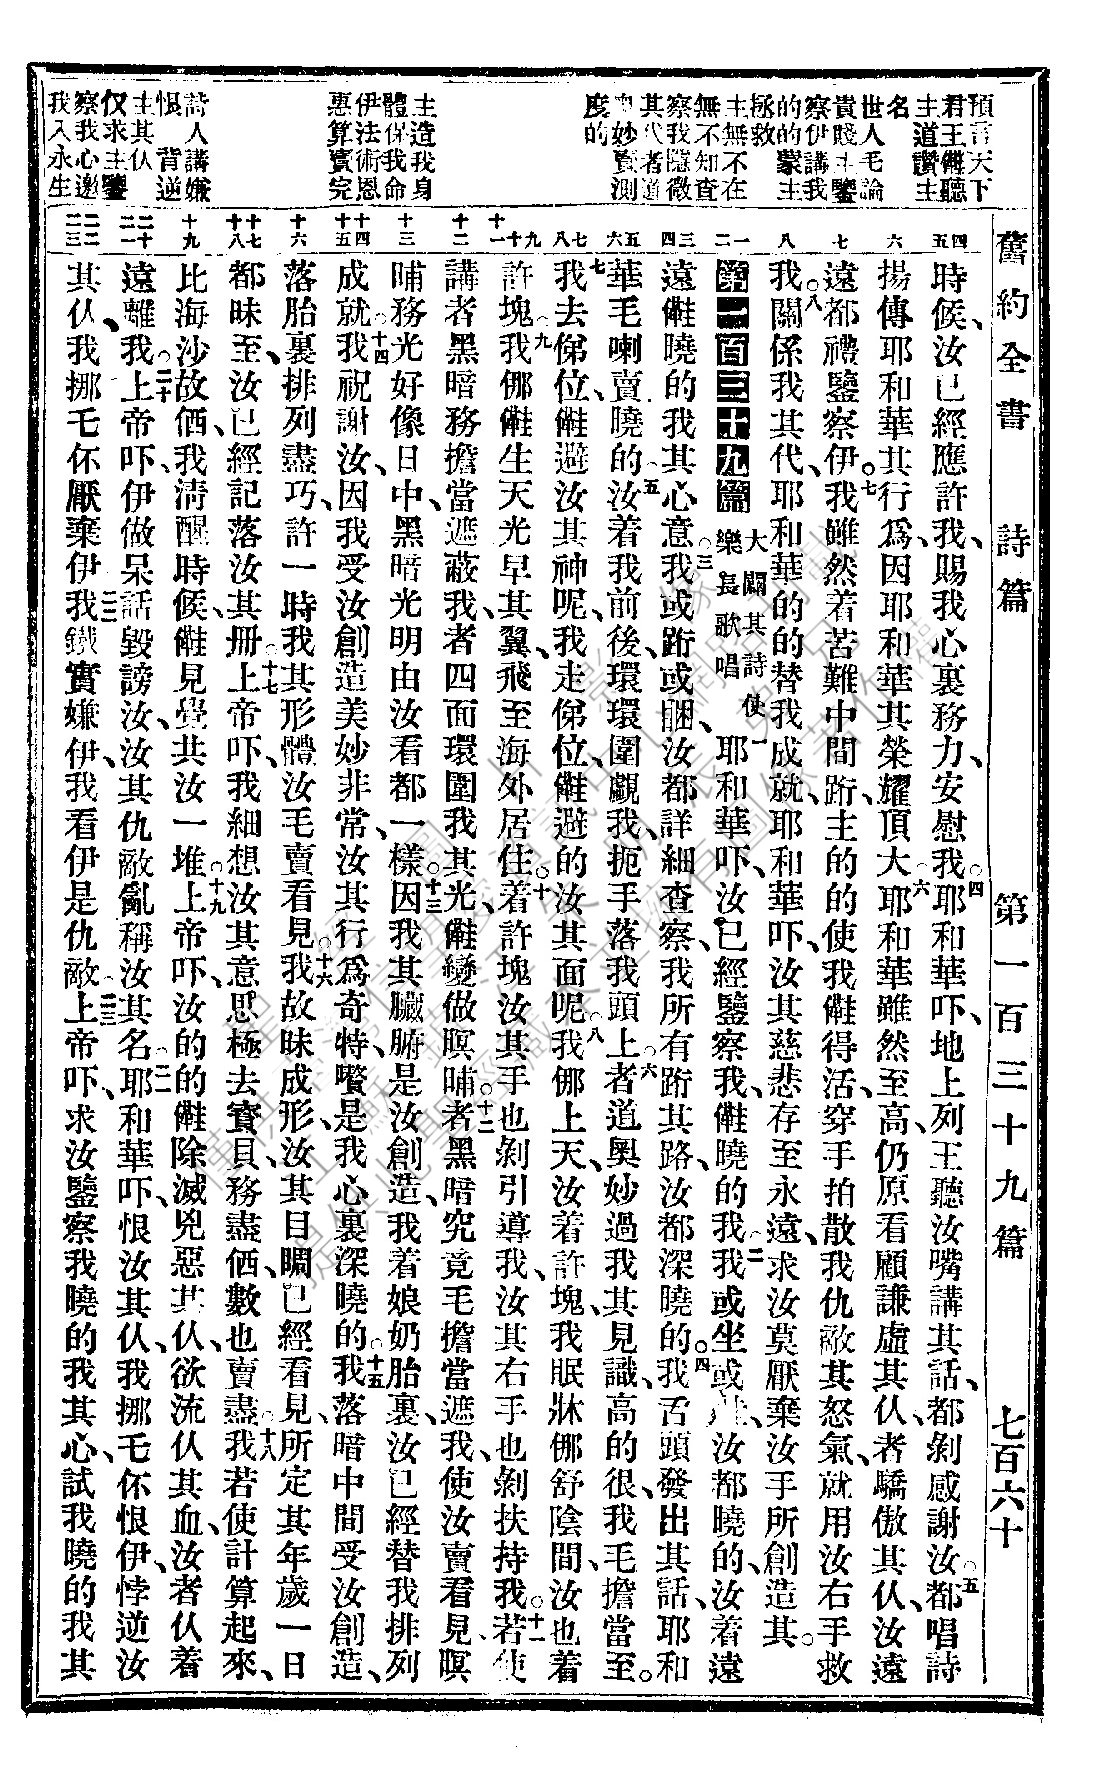 舊約全書 詩篇 第一百三十九篇 七百六十
預言天下
君王𣍐聽
主道讚主
名
世人毛論
貴賤主鑒
察伊講我
的的蒙主
拯救
主無不在
無不知查
察我隱微
其代者道
奧妙賣測
度的
主造我身
體保我命
伊法術恩
惠算賣完
詩人講嫌
恨背逆
主其仇
仅求主鑒
察我心邀
我入永生
四 五 六 七 八 一 二 三 四 五 六 七 八 九 十 十一 十二 十三 十四 十五 十六 十七 十八 十九 二十 二一 二二 二三
時候、汝已經應許我、賜我心裏務力、安慰我、○四耶和華吓、地上列王聽汝嘴講其話、都剝感謝汝、○五都唱詩
揚傳耶和華其行爲、因耶和華其榮耀頂大、○六耶和華雖然至高、仍原看顧謙虛其仈、者驕傲其仈、汝遠
遠都禮鑒察伊。○七我雖然着苦難中間跔、主的的使我𣍐得活、穿手拍散我仇敵其怒氣、就用汝右手救
我。○八關係我其代、耶和華的的替我成就、耶和華吓、汝其慈悲存至永遠、求汝莫厭棄汝手所創造其。○
第一百三十九篇 大闢其詩使樂長歌唱 一耶和華吓、汝已經鑒察我、𣍐曉的我、○二我或坐或、汝都曉的、汝着遠
遠𣍐曉的我其心意、○三我或跔或睏、汝都詳細查察、我所有跔其路、汝都深曉的。○四我舌頭發出其話、耶和
華毛喇賣曉的、○五汝着我前後、環環圍覷我、扼手落我頭上、○六者道奧妙過我其見識、高的很、我毛擔當至。
○七我去俤位、𣍐避汝其神呢、我走俤位、𣍐避的汝其面呢、○八我㑚上天、汝着許塊、我眠牀㑚舒陰間、汝也着
許塊、○九我㑚𣍐生天光早其翼、飛至海外居住、○十着許塊汝其手也剝引導我、汝其右手也剝扶持我、○十一若使
講者黑暗務擔當遮蔽我、者四面環圍我其光、𣍐變做暝晡。○十二者黑暗究竟毛擔當遮我、使汝賣看見、暝
晡務光好像日中、黑暗光明由汝看都一樣、○十三因我其臟腑是汝創造、我着娘奶胎裏、汝已經替我排列
成就、○十四我祝謝汝、因我受汝創造美妙非常、汝其行爲奇特、嚽是我心裏深曉的、○十五我落暗中間受汝創造、
落胎裏排列盡巧、許一時我其形體、汝毛賣看見、○十六我故昧成形、汝其目睭已經看見、所定其年歲一日
都昧至、汝已經記落汝其册上。○十七上帝吓、我細想汝其意思、極去寶貝、務盡価、數也賣盡、○十八我若使計算起來、
比海沙故価、我清醒時候、𣍐見覺共汝一堆、○十九上帝吓、汝的的𣍐除滅兇惡其仈、欲流仈其血、汝者仈着
遠離我、○二十上帝吓、伊做呆話毀謗汝、汝其仇敵亂稱汝其名、○二一耶和華吓、恨汝其仈、我挪毛伓恨伊、悖逆汝
其仈、我挪毛伓厭棄伊、○二二我鐵實嫌伊、我看伊是仇敵、○二三上帝吓、求汝鑒察我、曉的我其心、試我曉的我其